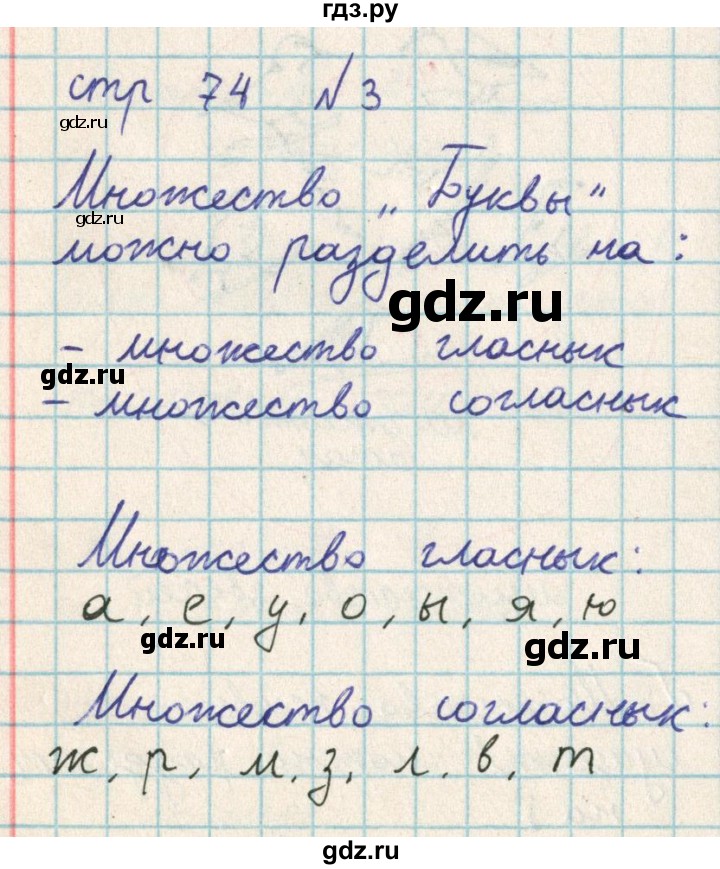 гдз.ру
стр 74 №3
gdz.ru
Множество „Буквы"
gdz.ru
можно разделить на:
gdz.ru
- множество гласных
gdz.ru
- множество согласных
Множество гласных:
а, е, у, о, ы, я, ю
gdz.ru
gdz.ru
Множество согласных:
ж, р, м, з, л, в, т
gdz.ru